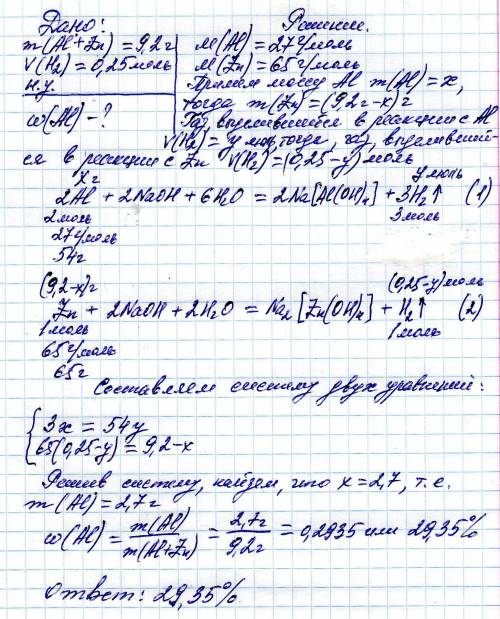 Дано:
m(Al+Zn) = 9,2 г
V(H₂) = 0,25 моль
н.у.
ω(Al) - ?
Решение.
M(Al) = 27 г/моль
M(Zn) = 65 г/моль
Примем массу Al m(Al) = x,
тогда m(Zn) = (9,2-x) г
Газ, выделившейся в реакции с Al
V(H₂) = y моль, тогда, газ, выделивший-
ся в реакции с Zn V(H₂) = (0,25-y) моль
x г y моль
2Al + 2NaOH + 6H₂O = 2Na[Al(OH)₄] + 3H₂↑ (1)
2 моль 3 моль
27 г/моль
54 г
(9,2-x) г (0,25-y) моль
Zn + 2NaOH + 2H₂O = Na₂[Zn(OH)₄] + H₂↑ (2)
1 моль 1 моль
65 г/моль
65 г
Составляем систему двух уравнений:
3x = 54y
65(0,25-y) = 9,2-x
Решив систему, найдем, что x = 2,7, т.е.
m(Al) = 2,7 г
ω(Al) = m(Al)/m(Al+Zn) = 2,7 г/9,2 г = 0,2935 или 29,35%
Ответ: 29,35%.